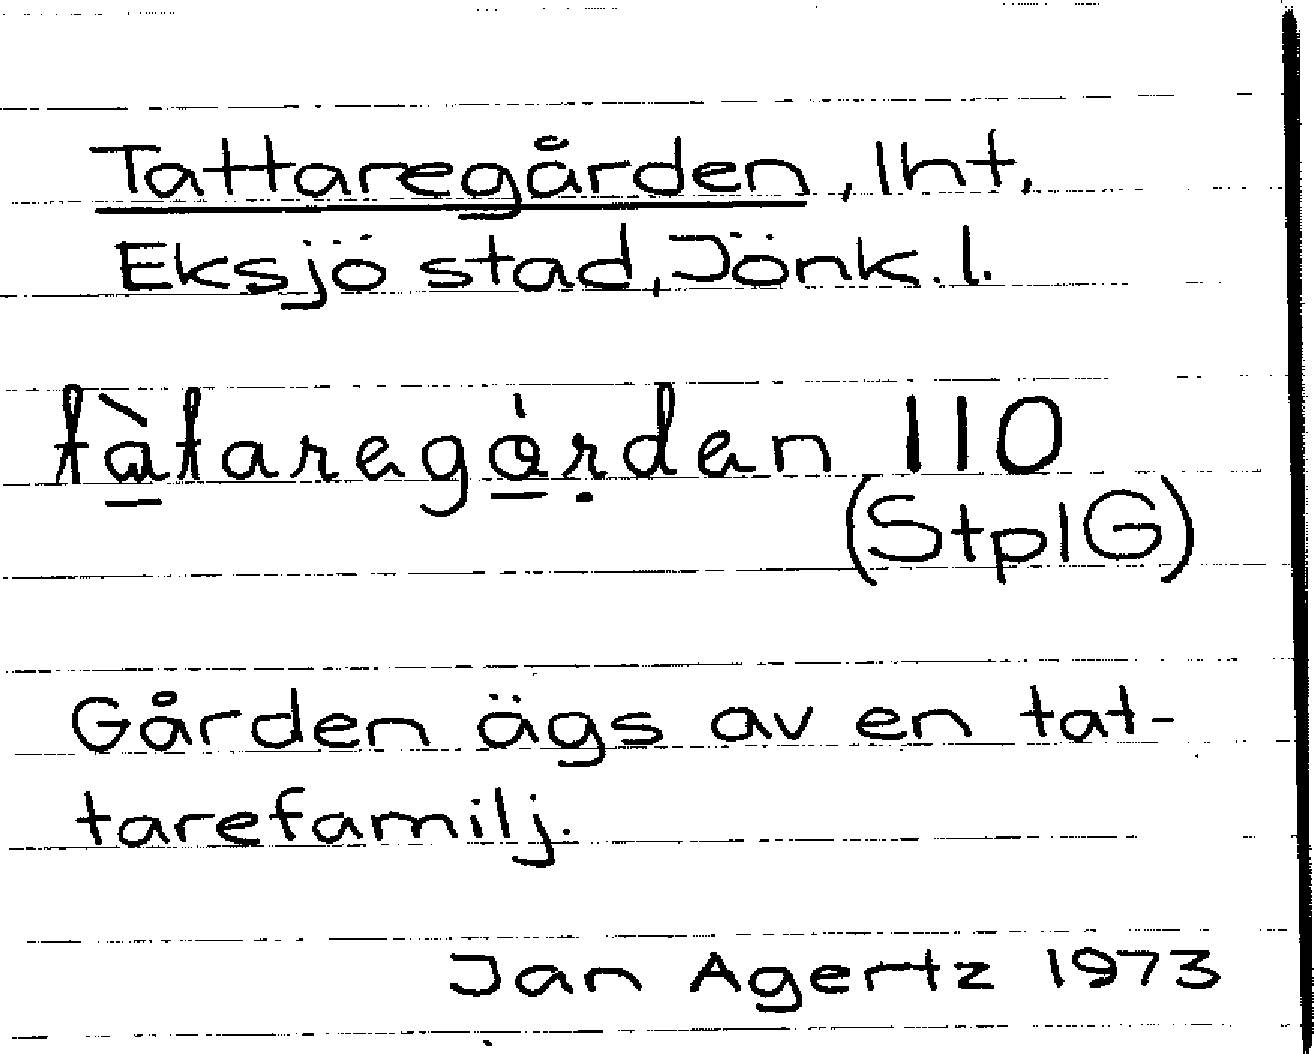 Tattaregården, lht.
Eksjö stad, Jönk. l.
tàtaregǻrden 110
(StplG)
Gården ägs av en tat-
tarefamilj.
Jan Agertz 1973